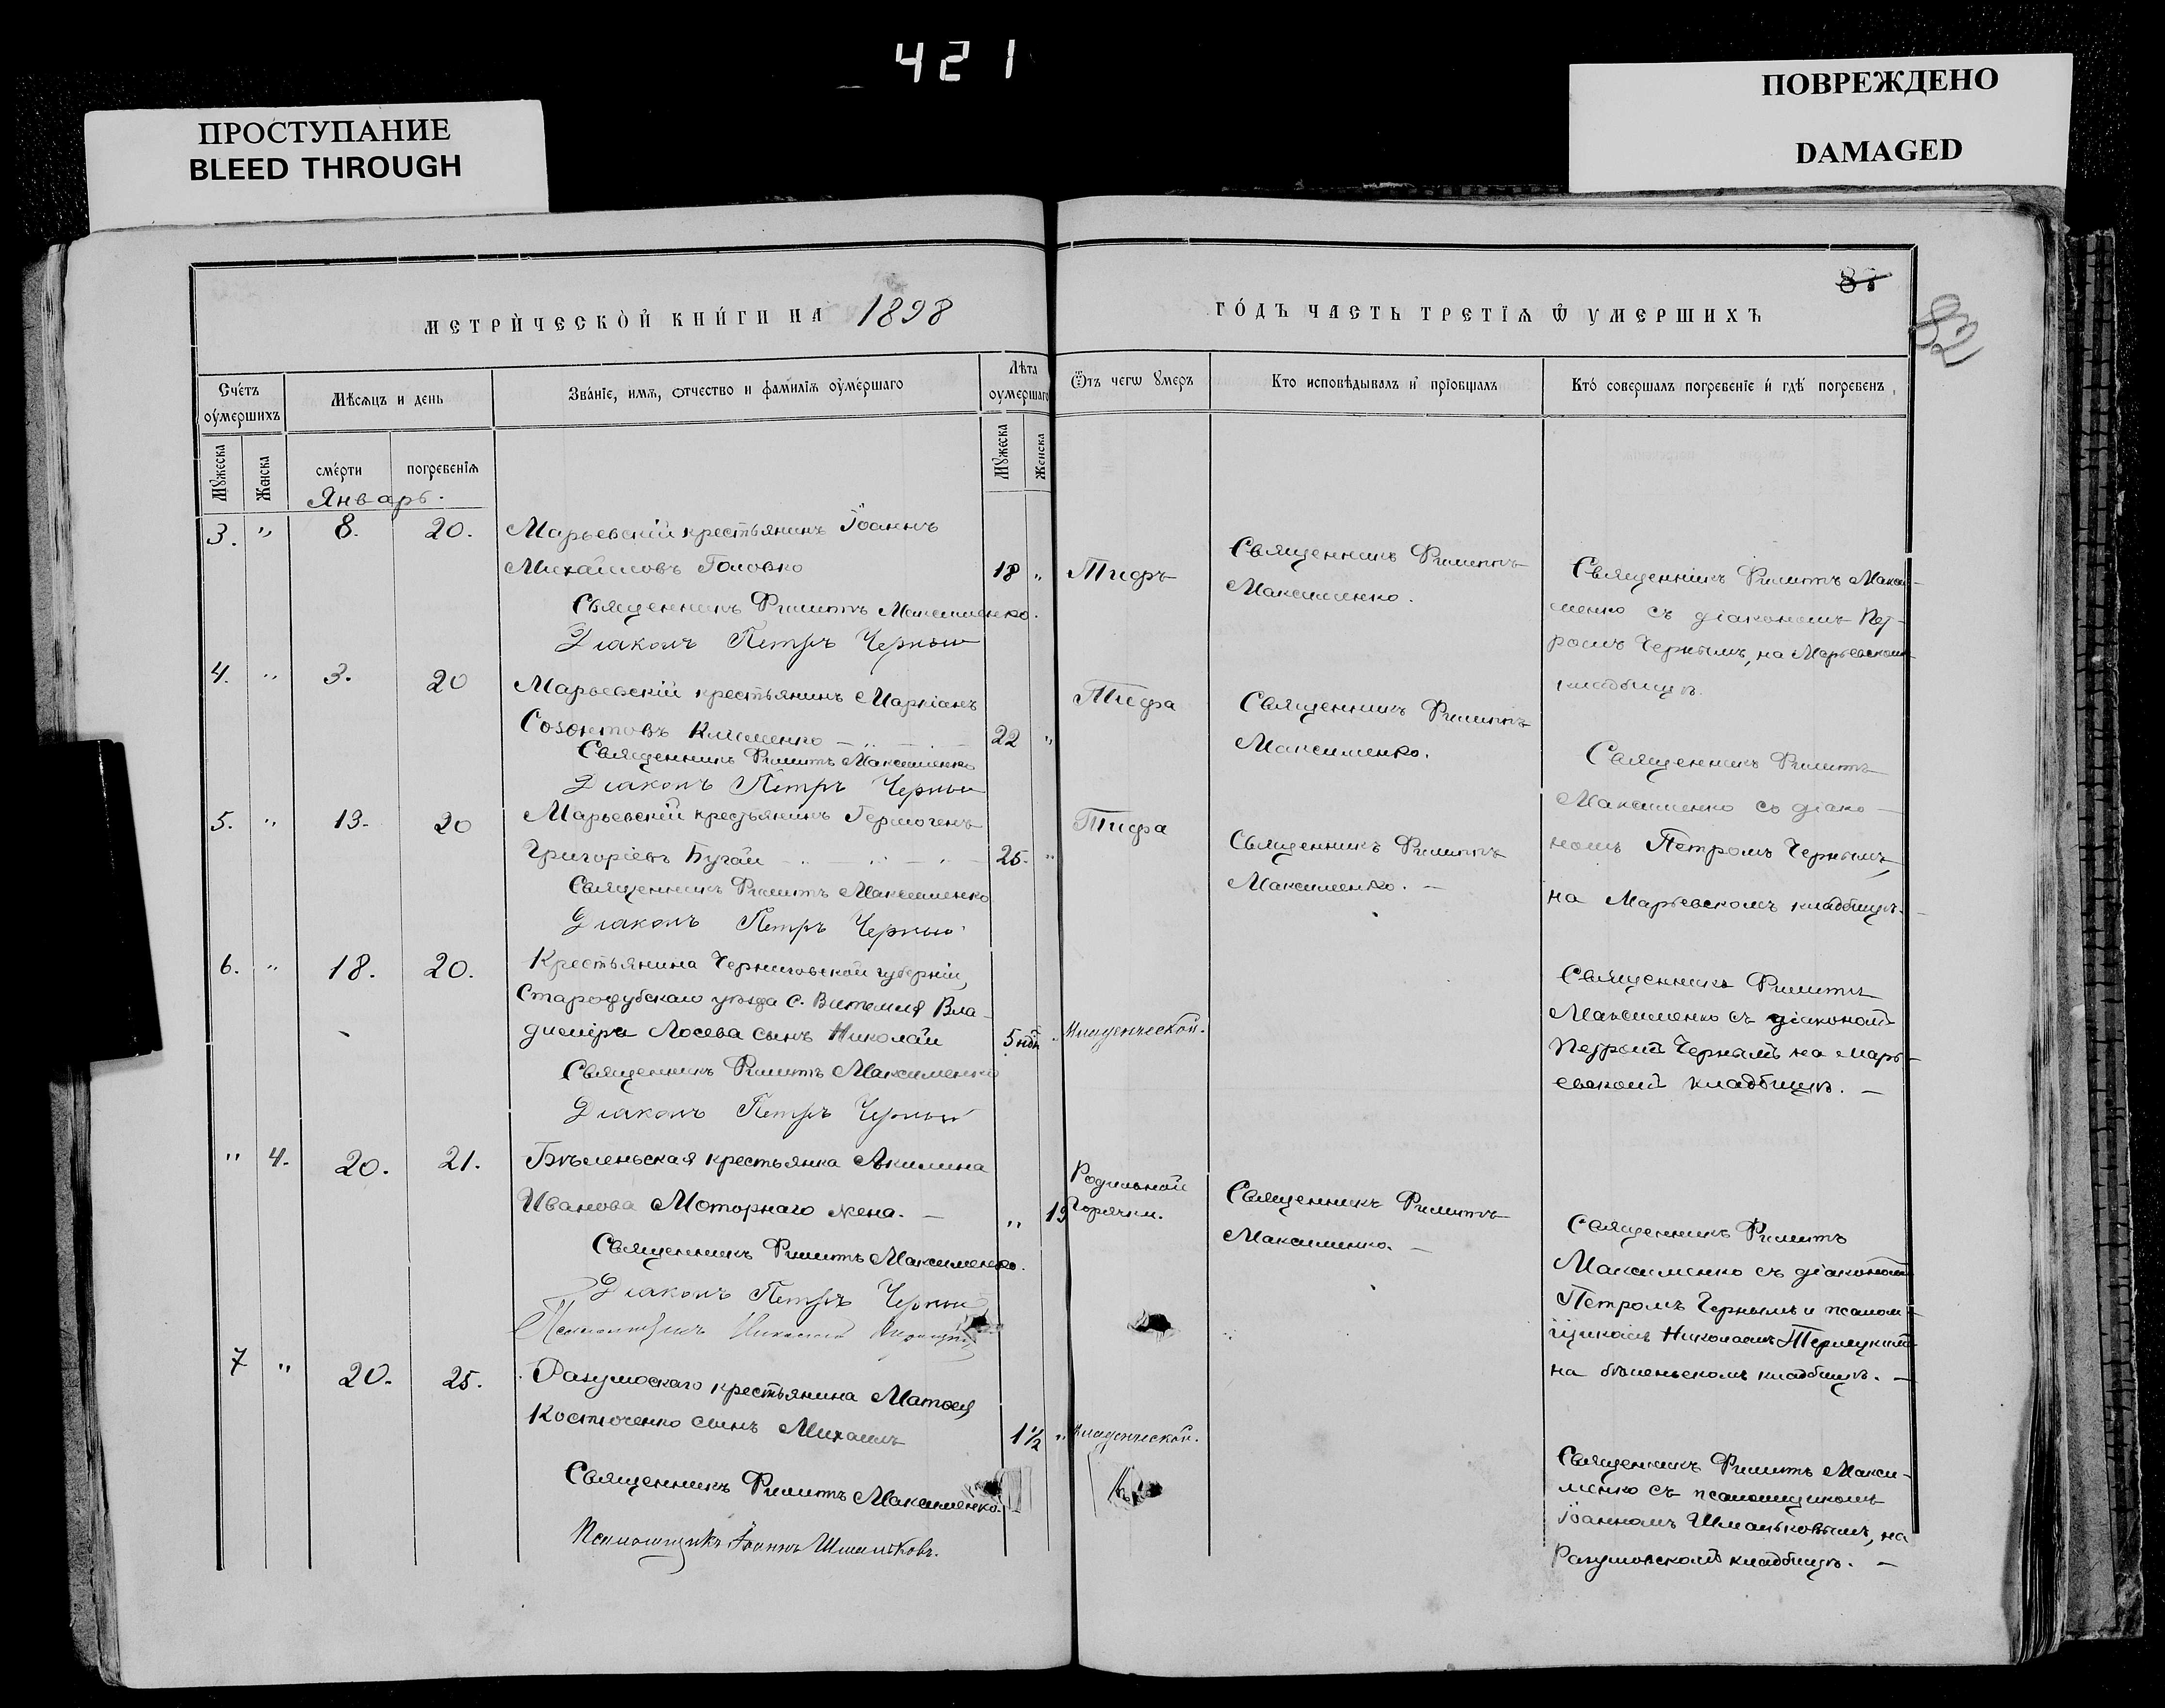 421
ПРОСТУПАНИЕ
BLEED THROUGH
ПОВРЕЖДЕНО
DAMAGED
82
МЕТРИ́ЧЕСКОЙ КНИ́ГИ НА 1898
ГО́ДЪ ЧАСТЬ ТРЕТІѦ Ѿ УМЕРШИХЪ
Сче́тъ оу҆ме́ршихъ
Мѣсѧцъ и день
Зва́нїе, имѧ, отчество и фами́лїѧ оу҆ме́ршаго
Лѣта оумершаго
Ѿтъ чегѡ ꙋмеръ
Кто исповѣдывалъ и҆ прїобщалъ
Кто́ совершалъ погребенїе и҆ гдѣ̀ погребенъ
Мꙋжеска
Женска
сме́рти
погребенїѧ
Мꙋжеска
Женска
Январь.
3. " 8. 20. Марьевскій крестьянинъ Іоаннъ
Михайловъ Головко 18 " Тифъ
Священникъ Филиппъ Максименко.
Діаконъ Петръ Черный
Священникъ Филиппъ
Максименко.
Священникъ Филиппъ Макси-
менко съ діакономъ Пет-
ромъ Чернымъ, на Марьевскомъ
кладбищѣ.
4. " 3. 20 Марьевскій крестьянинъ Маркіанъ
Созонтовъ Клименко 22 " Тифа
Священникъ Филиппъ Максименко
Діаконъ Петръ Черный
Священникъ Филиппъ
Максименко.
Священникъ Филиппъ
Максименко съ діако-
номъ Петромъ Чернымъ,
на Марьевскомъ кладбищѣ.
5. " 13. 20 Марьевскій крестьянинъ Гермогенъ
Григоріевъ Бугай 25. " Тифа
Священникъ Филиппъ Максименко
Діаконъ Петръ Черный
Священникъ Филиппъ
Максименко. —
6. " 18. 20. Крестьянина Черниговской губерніи,
Стародубскаго уѣзда с. Витемля Вла-
диміра Лосева сынъ Николай 5 нд. " Младенческой.
Священникъ Филиппъ Максименко
Діаконъ Петръ Черный
Священникъ Филиппъ
Максименко съ діакономъ
Петромъ Чернымъ на Марь-
евскомъ кладбищѣ. —
" 4. 20. 21. Бѣленьская крестьянка Акилина
Иванова Моторнаго жена. — " 19 Родильной
Горячки.
Священникъ Филиппъ Максименко.
Діаконъ Петръ Черный
Псаломщикъ Николай
Священникъ Филиппъ
Максименко. —
Священникъ Филиппъ
Максименко съ діакономъ
Петромъ Чернымъ и псалом-
щикомъ Николаемъ
на бѣленьскомъ кладбищѣ. —
7 " 20. 25. Разумоскаго крестьянина Матѳея
Костюченко сынъ Михаилъ 1½ " Младенческой.
Священникъ Филиппъ Максименко. —
Псаломщикъ Іоаннъ Шмальковъ.
Священникъ Филиппъ Макси-
менко съ псаломщикомъ
Іоанномъ Шмальковымъ, на
Разумовскомъ кладбищѣ. —